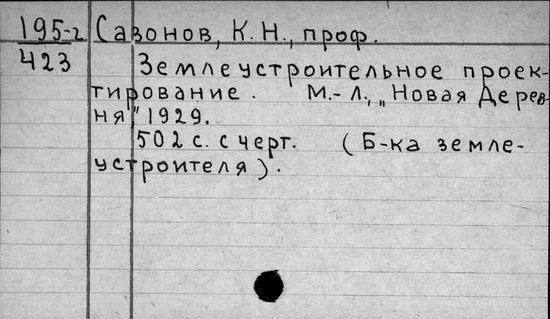 195-2 Сазонов, К. Н., проф.
423 Землеустроительное проек-
тирование. М.-Л., „Новая Дерев-
ня" 1929.
502 с. с черт. (Б-ка земле-
устроителя).